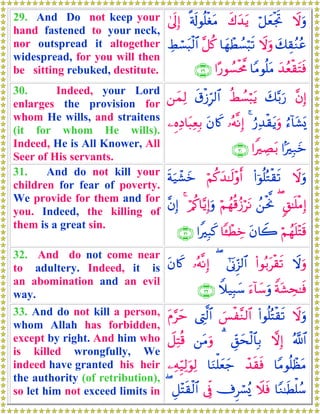 29. And Do not keep your
hand fastened to your neck,
nor outspread it altogether
widespread, for you will then
be sitting rebuked, destitute.
وَلَا تَجْعَلْ يَدَكَ مَغْلُولَةً إِلَىٰ
عُنُقِكَ وَلَا تَبْسُطْهَا كُلَّ ٱلْبَسْطِ
فَتَقْعُدَ مَلُومًا مَّحْسُورًا ٢٩
30. Indeed, your Lord
enlarges the provision for
whom He wills, and straitens
(it for whom He wills).
Indeed, He is All Knower, All
Seer of His servants.
إِنَّ رَبَّكَ يَبْسُطُ ٱلرِّزْقَ لِمَن
يَشَآءُ وَيَقْدِرُ ۚ إِنَّهُۥ كَانَ بِعِبَادِهِۦ
خَبِيرًۢا بَصِيرًا ٣٠
31. And do not kill your
children for fear of poverty.
We provide for them and for
you. Indeed, the killing of
them is a great sin.
وَلَا تَقْتُلُوٓا۟ أَوْلَٰدَكُمْ خَشْيَةَ
إِمْلَٰقٍ ۖ نَّحْنُ نَرْزُقُهُمْ وَإِيَّاكُمْ ۚ إِنَّ
قَتْلَهُمْ كَانَ خِطْـًٔا كَبِيرًا ٣١
32. And do not come near
to adultery. Indeed, it is
an abomination and an evil
way.
وَلَا تَقْرَبُوا۟ ٱلزِّنَىٰٓ ۖ إِنَّهُۥ كَانَ
فَٰحِشَةً وَسَآءَ سَبِيلًا ٣٢
33. And do not kill a person,
whom Allah has forbidden,
except by right. And him who
is killed wrongfully, We
indeed have granted his heir
the authority (of retribution),
so let him not exceed limits in
وَلَا تَقْتُلُوا۟ ٱلنَّفْسَ ٱلَّتِى حَرَّمَ
ٱللَّهُ إِلَّا بِٱلْحَقِّ ۗ وَمَن قُتِلَ
مَظْلُومًا فَقَدْ جَعَلْنَا لِوَلِيِّهِۦ
سُلْطَٰنًا فَلَا يُسْرِف فِّى ٱلْقَتْلِ ۖ